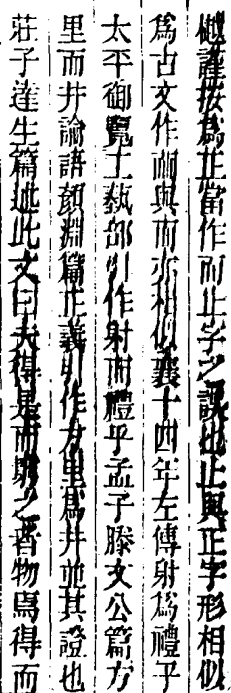 樾謹按為正當作而止字之誤也止與正字形相似
為古文作𦥮與而亦相似襄十四年左傳射為禮乎
太平御覽工埶部引作射而禮乎孟子滕文公篇方
里而井論語顏淵篇正義引作方里為井竝其證也
莊子達生篇述此文曰夫得是而窮之者物焉得而